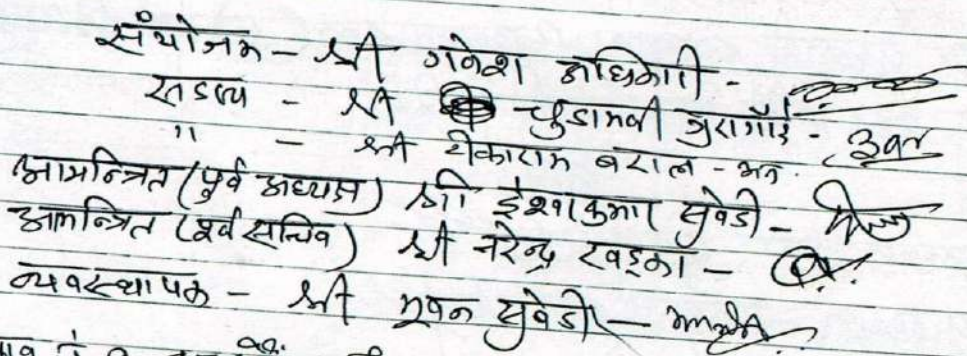 संयोजक - श्री गणेश अधिकारी -
सदस्य - श्री चुडामणी गुरागाँई -
" - श्री टीकाराम बराल -
आमन्त्रित (पुर्व अध्यक्ष) श्री ईश्वरकुमार सुवेडी -
आमन्त्रित (पूर्व सचिव) श्री नरेन्द्र खड्का -
व्यवस्थापक - श्री भुवन सुवेडी -